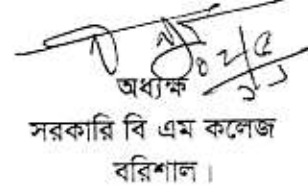 অধ্যক্ষ
সরকারি বি এম কলেজ
বরিশাল।